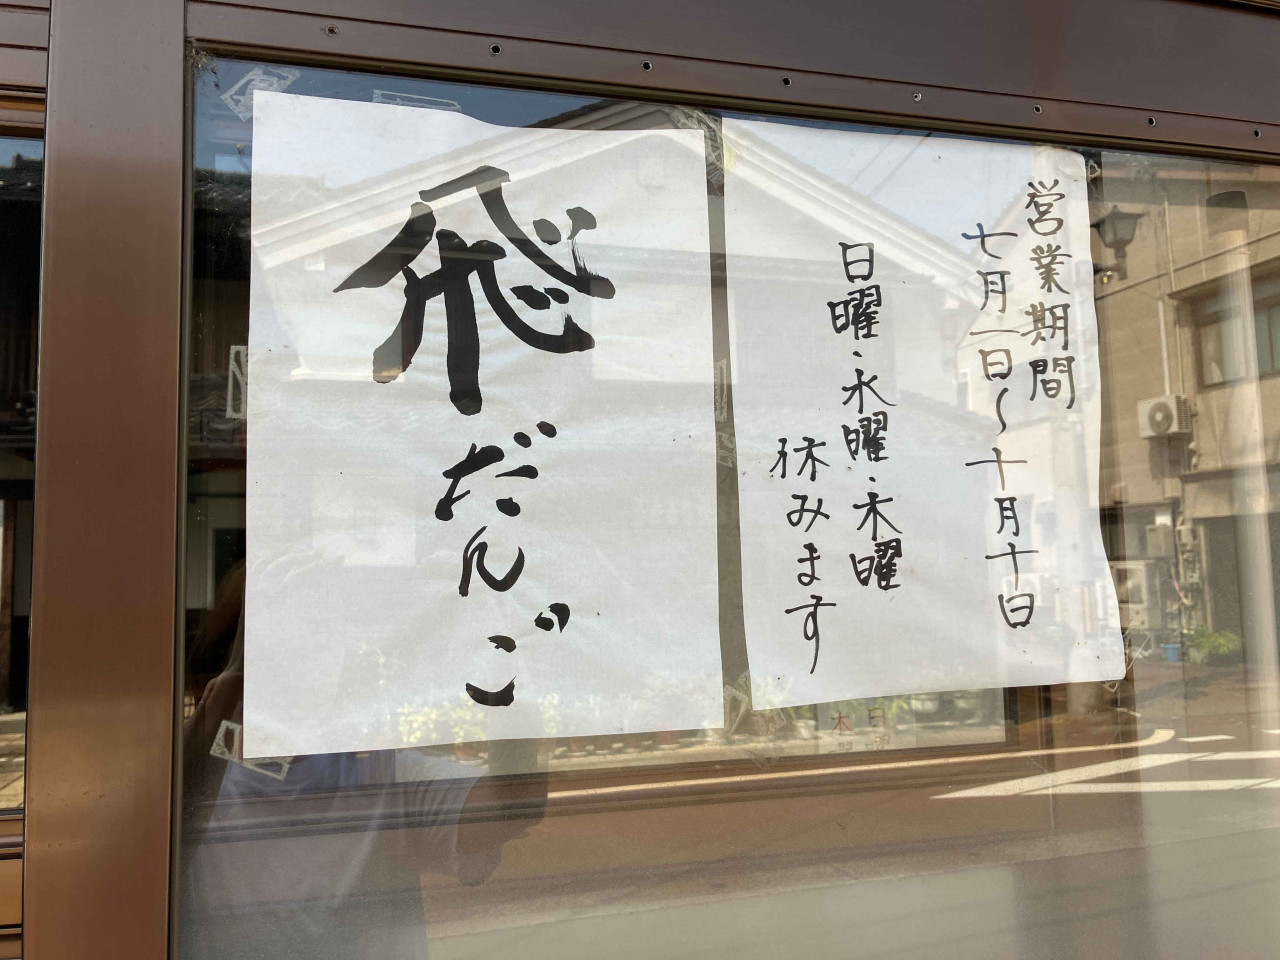 営業期間
七月一日〜十月十日
日曜・水曜・木曜
休みます
飛だんご
木 日